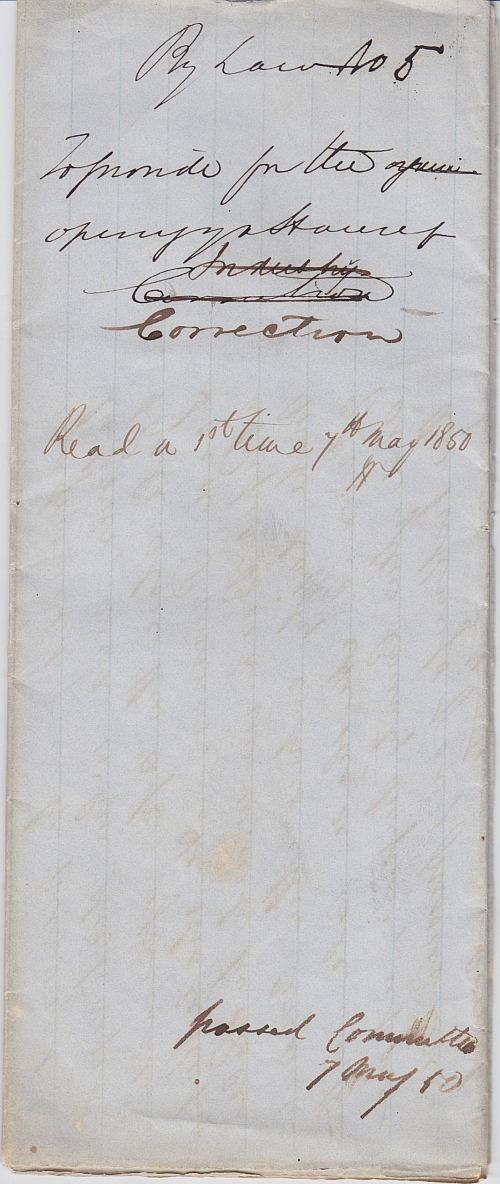 By Law No 5
To provide for the
opening of a House of
Industry
Correction
Correction
Read a 1st time 7th May 1850
passed Committee
7 May 50